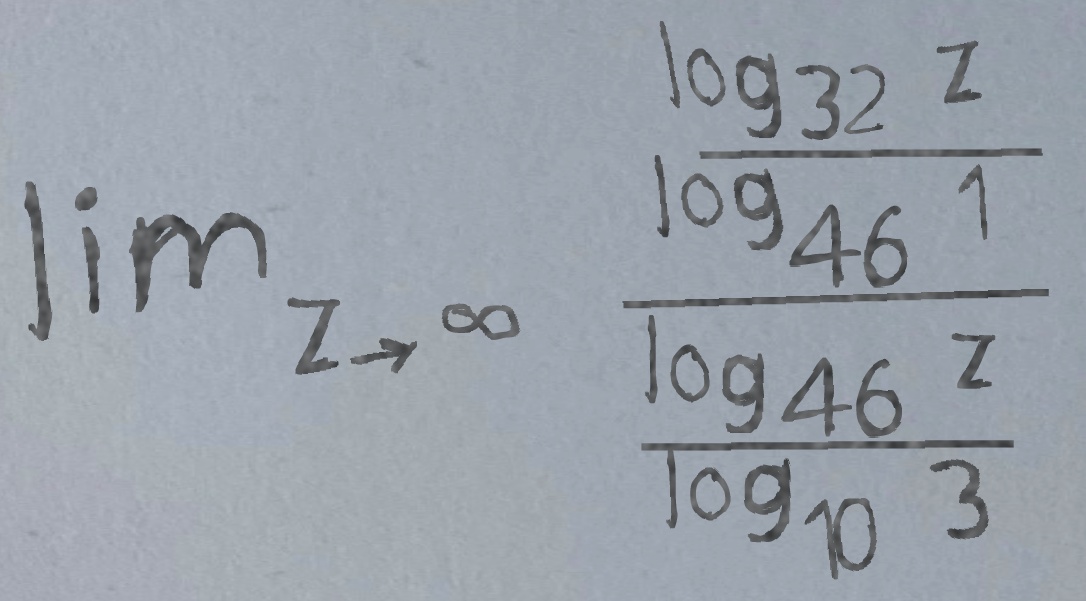 lim z→∞ \frac{\frac{log_{32} z}{log_{46} 1}}{\frac{log_{46} z}{log_{10} 3}}